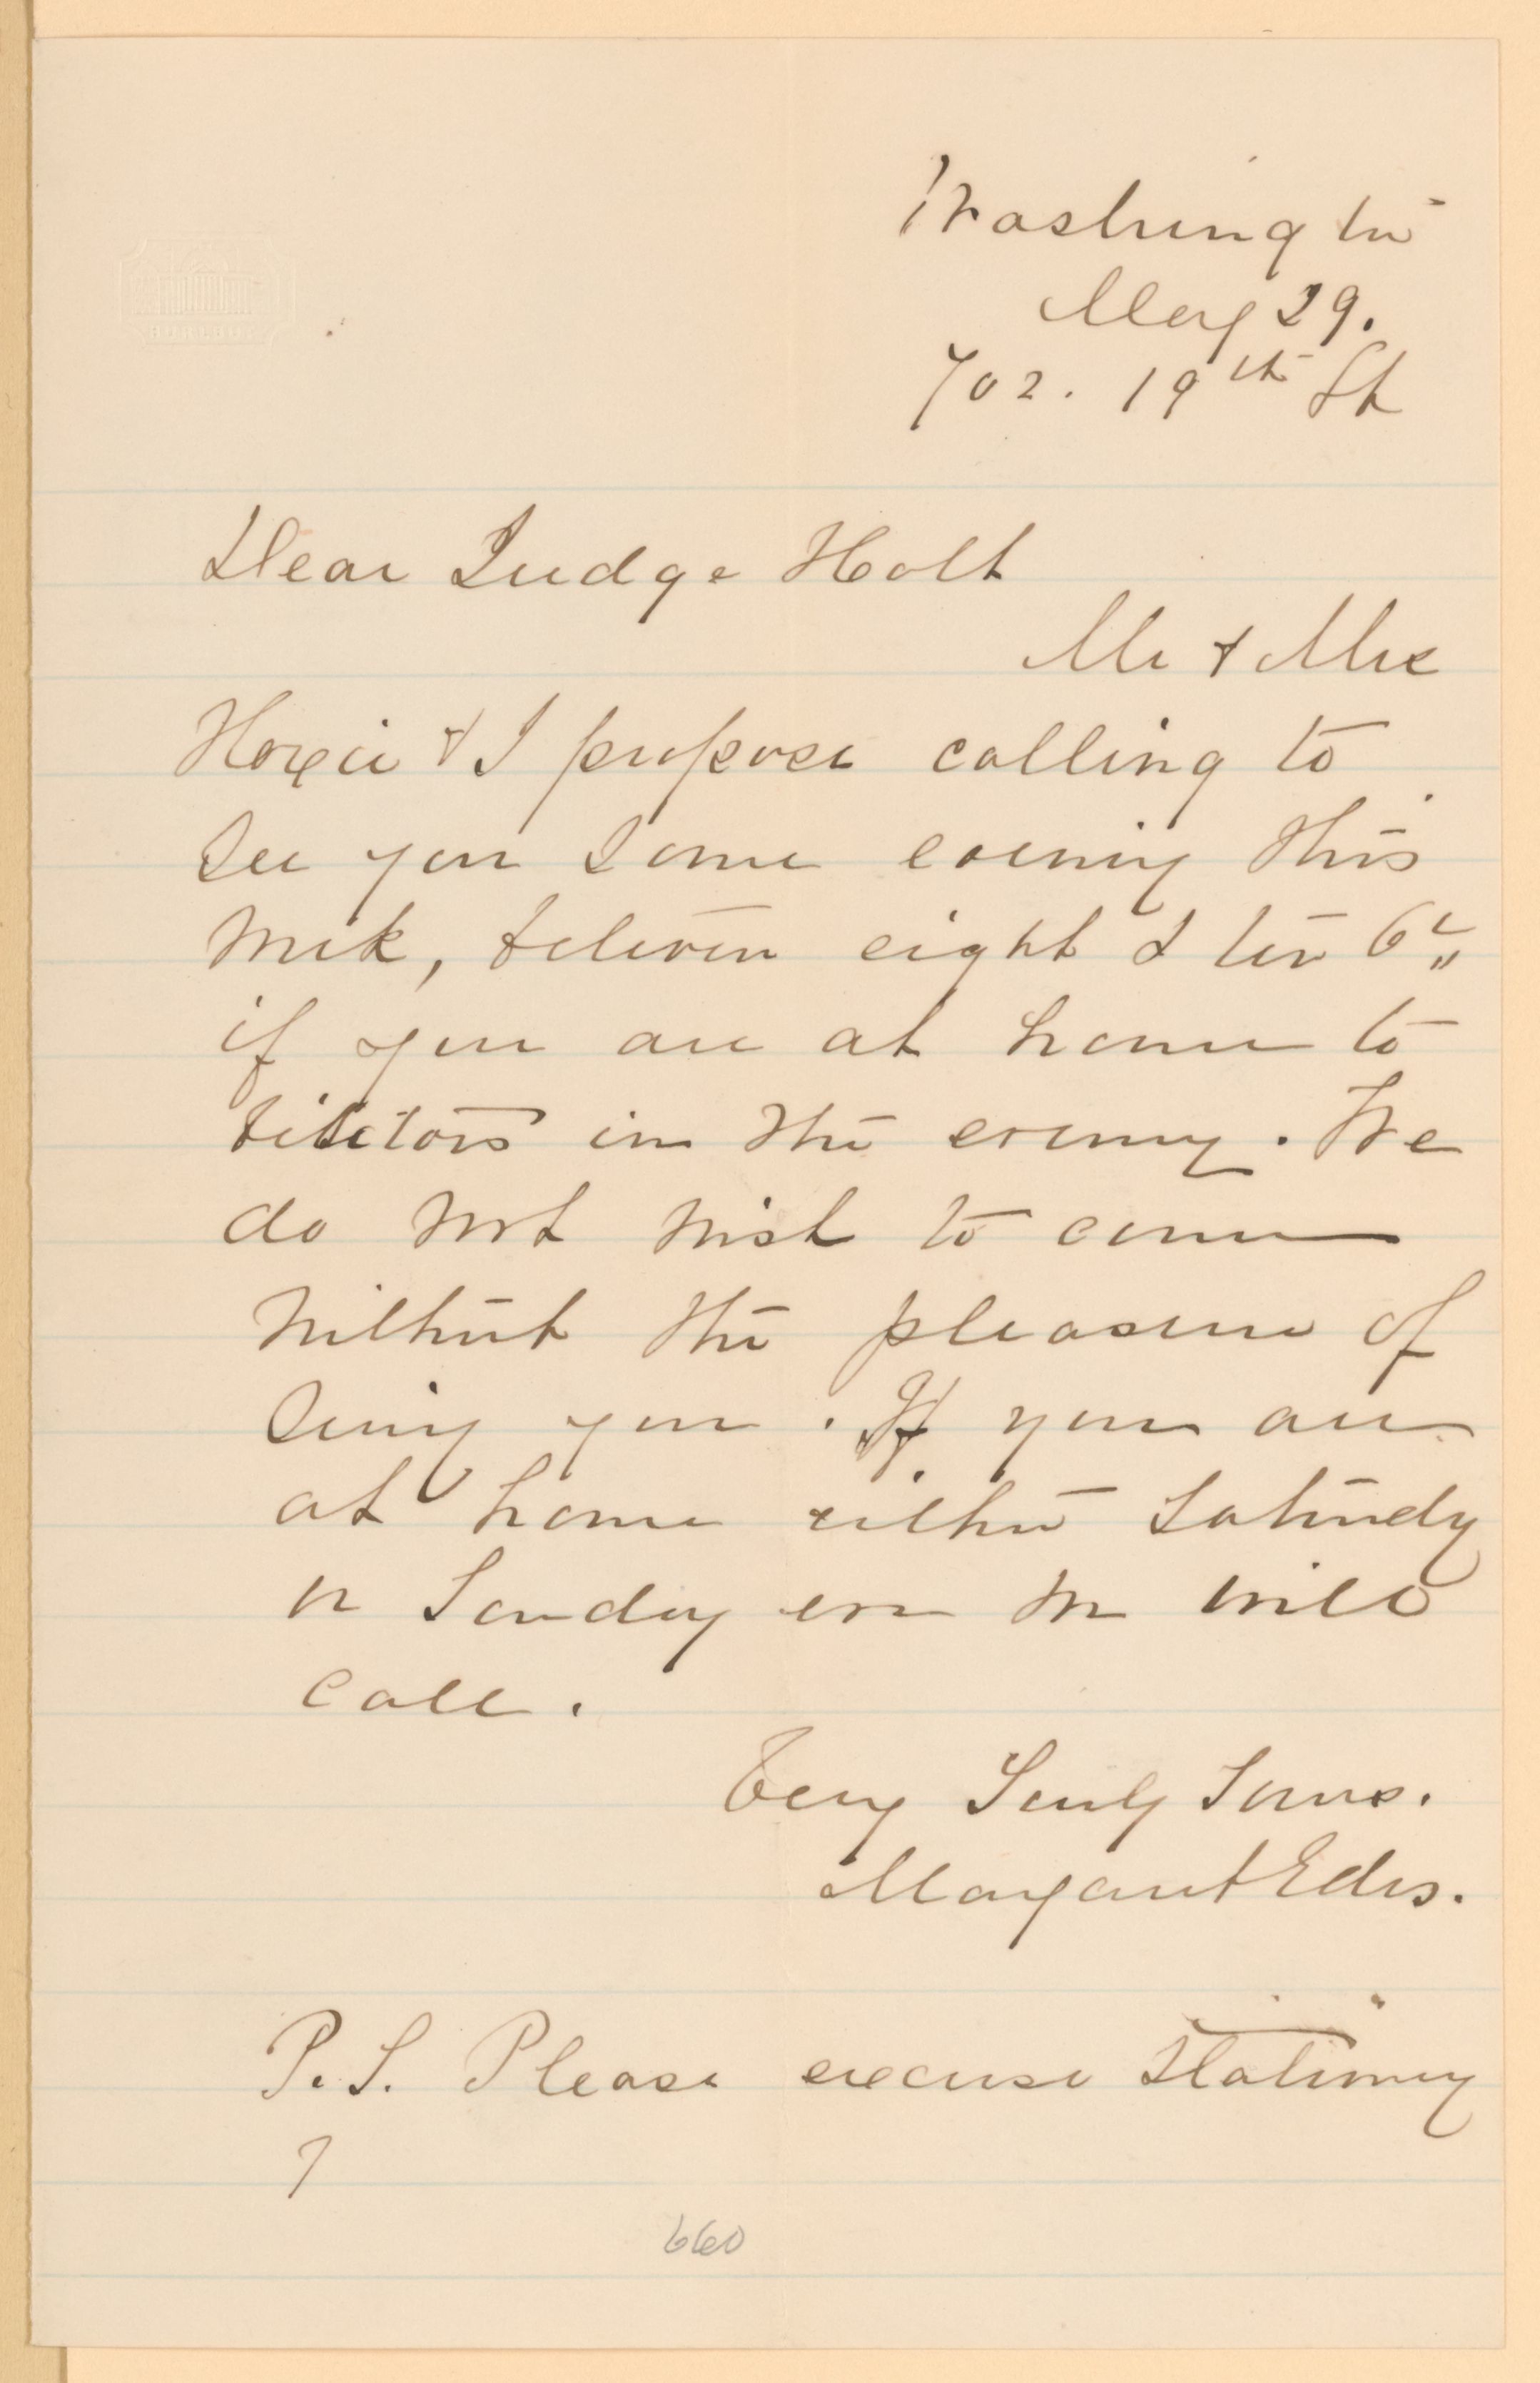 Washington
May 29.
702. 19th St
Dear Judge Holt
Mr & Mrs
Hoxie & I propose calling to
see you some evening this
week, between eight & ten
if you are at home to
visitors in the evening. We
do not wish to come
without the pleasure of
seeing you. If you are
at home either Saturday
or Sunday eve we will
call.
Very Truly Yours.
Margaret Edes.
P.S. Please excuse stationery
660